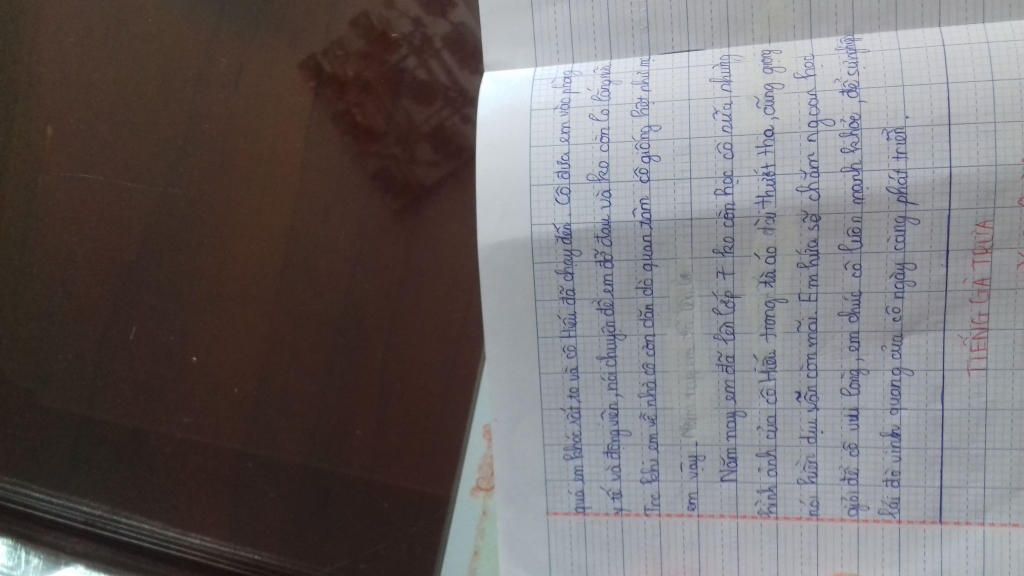 quá em khóc rất to và cô Hiếu đã chạy đến. Cô đưa em vào phòng
y tế và động viên, nói chuyện để em đỡ đau và ko còn lo lắng nữa
Trc khi em về nhà cô còn dặn dò quan tâm cô giống hệt như mẹ
em vậy.
Năm nay em đã lên lớp 7 ko còn học cô nữa nhưng
hình ảnh của cô Hiếu trong tà áo dài thướt tha, cùng giọng
nói hiền dịu vẫn còn mãi. Em hứa sẽ chăm ngoan học
giỏi để cô vui lòng, em chúc cô luôn mạnh khỏe, để sự nghiệp
lái đò vinh quang của cô ngày càng phát triển.
TIẾNG GÀ TRƯA